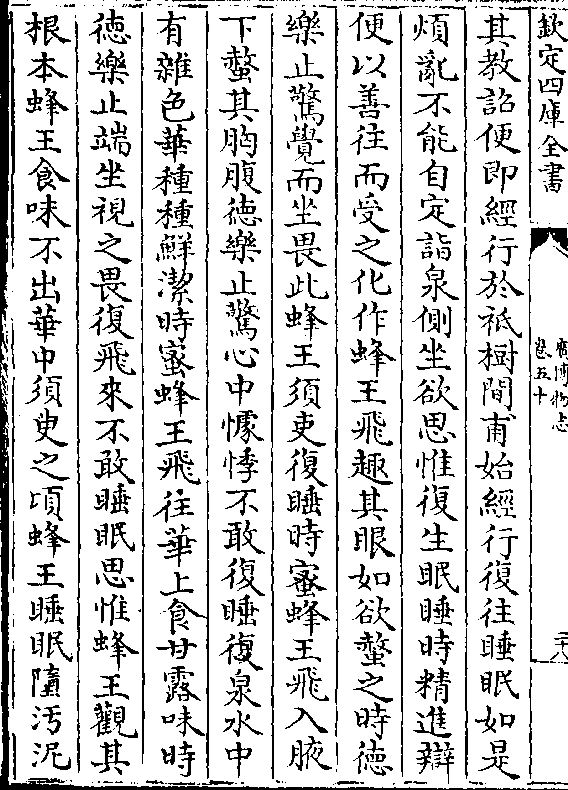 欽定四庫全書
廣博物志
卷五十
三八
其教詔便即經行於祗樹間甫始經行復往睡眠如是
煩亂不能自定詣泉側坐欲思惟復生眠睡時精進辯
便以善往而受之化作蜂王飛趣其眼如欲螫之時徳
樂止驚覺而坐畏此蜂王須吏復睡時蜜蜂王飛入腋
下螫其胷腹徳樂止驚心中懅悸不敢復睡復泉水中
有雜色華種種鮮潔時蜜蜂王飛往華上食甘露味時
徳樂止端坐視之畏復飛來不敢睡眠思惟蜂王觀其
根本蜂王食味不出華中須臾之頃蜂王睡眠墮汚泥